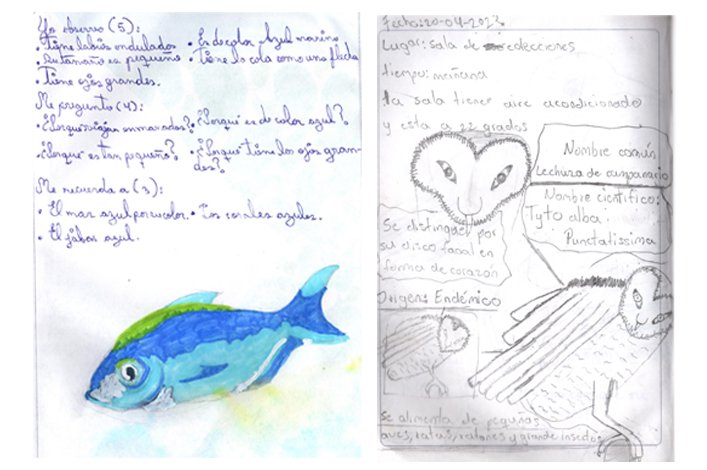 Yo observo (5):
• Tiene labios ondulados • Es de color Azul marino
• Su tamaño es pequeño • Tiene la cola como una flecha
• Tiene ojos grandes.
Me pregunto (4):
• ¿Porque viajan en manadas? • ¿Porque es de color azul?
• ¿Porque es tan pequeño? • ¿Porque tiene los ojos gran-
des?
Me recuerda a (3):
• El mar azul por su color. • Los corales azules.
• El jabon azul.
Fecha: 20-04-2023
Lugar: sala de colecciones
tiempo: mañana
la sala tiene aire acondicionado
y esta a 22 grados
Nombre común
Lechuza de campanario
Nombre científico:
Tyto alba
Punctatissima
Se distingue por
su disco facial en
forma de corazón
Origens Endémico
Se alimenta de pequeñas
aves, ratas, ratones y grande insectos